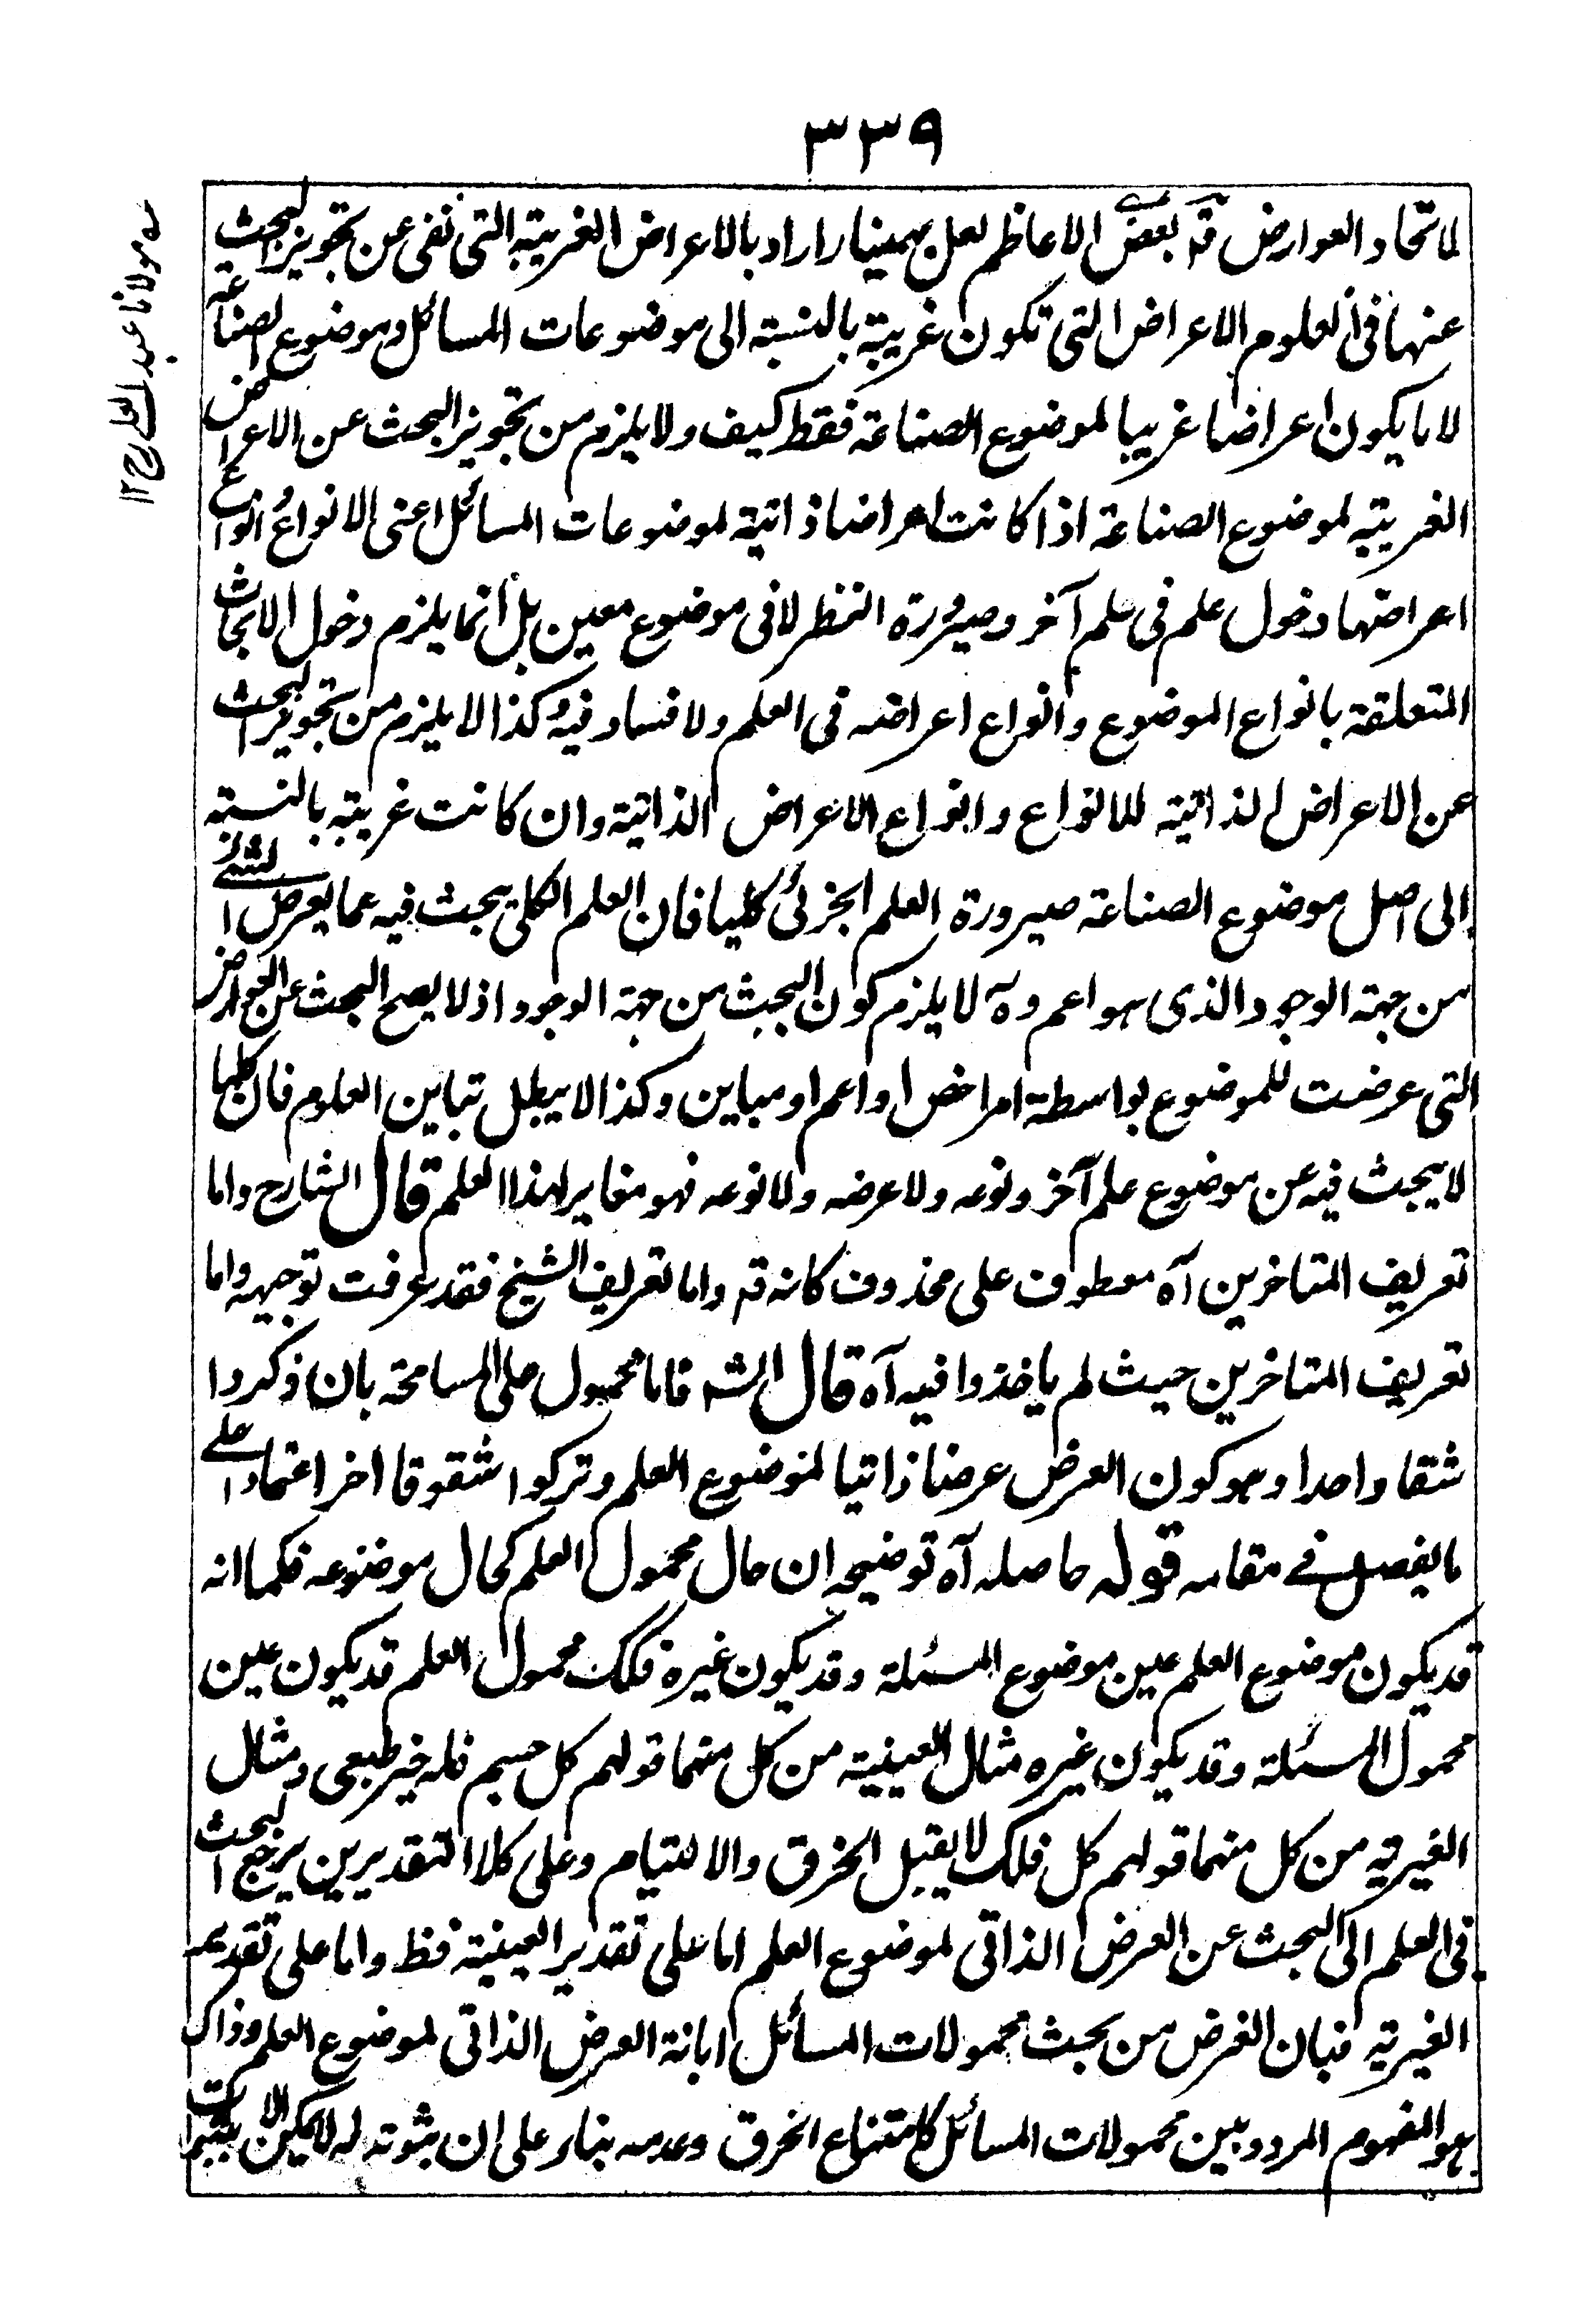 ٣٣٩
لاتحاد العوارض قد بعض الاعاظم لعل بهمنيار اراد بالاعراض الغريبة التى نفى عن تجويز البحث
عنها فى العلوم الاعراض التى تكون غريبة بالنسبة الى موضوعات المسائل وموضوع الصناعة
لا ما يكون اعراضا غريبا لموضوع الصناعة فقط كيف ولا يلزم من تجويز البحث عن الاعراض
الغريبة لموضوع الصناعة اذا كانت اعراضا ذاتية لموضوعات المسائل اعنى الانواع وانواع
اعراضها دخول علم فى علم آخر وصيرورة النظر لا فى موضوع معين بل انما يلزم دخول الابحاث
المتعلقة بانواع الموضوع وانواع اعراضه فى العلم ولا فساد فيه وكذا لا يلزم من تجويز البحث
عن الاعراض الذاتية للانواع وانواع الاعراض الذاتية وان كانت غريبة بالنسبة
الى اصل موضوع الصناعة صيرورة العلم الجزئى كليا فان العلم الكلى يبحث فيه عما يعرض الشئ
من جهة الوجود الذى هو اعم وه لا يلزم كون البحث من جهة الوجود اذ لا يصح البحث عن العوارض
التى عرضت للموضوع بواسطة امر اخص او اعم او مباين وكذا لا يبطل تباين العلوم فان كلها
لا يبحث فيه عن موضوع علم آخر ونوعه ولا عرضه ولا نوعه فهو مغاير لهذا العلم قال الشارح واما
تعريف المتاخرين آه معطوف على محذوف كانه قد واما تعريف الشيخ فقد عرفت توجيهه واما
تعريف المتاخرين حيث لم ياخذوا فيه آه قال الشـ فاما محمول على المسامحة بان ذكروا
شقا واحدا وهو كون العرض عرضا ذاتيا لموضوع العلم وتركوا شقوقا اخر اعتمادا على
ما يفصل فى مقامه قوله حاصله آه توضيحه ان حال محمول العلم كحال موضوعه فكما انه
قد يكون موضوع العلم عين موضوع المسئلة وقد يكون غيره فكك محمول العلم قد يكون عين
محمول المسئلة وقد يكون غيره مثال العينية من كل منهما قولهم كل جسم فله حيز طبعى ومثال
الغيرية من كل منهما قولهم كل فلك لا يقبل الخرق والالتيام وعلى كلا التقديرين يرجع البحث
فى العلم الى البحث عن العرض الذاتى لموضوع العلم اما على تقدير العينية فظ واما على تقدير
الغيرية فبان الغرض من بحث محمولات المسائل ابانة العرض الذاتى لموضوع العلم وذاك
هو المفهوم المردد بين محمولات المسائل كامتناع الخرق وعدمه بناء على ان ثبوته له لا يمكن الا
مولانا عبد العلى رح ١٢